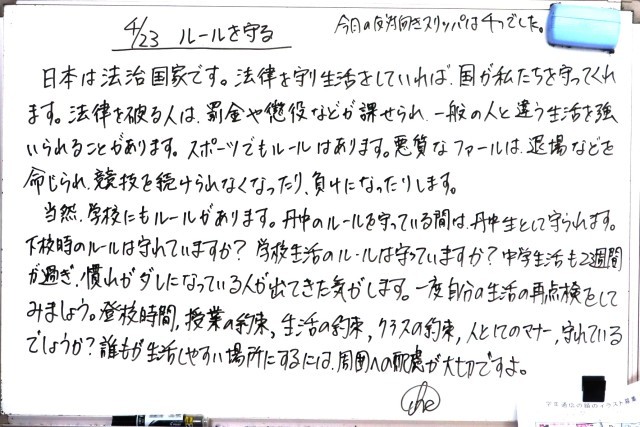 4/23 ルールを守る
今日の反対向きスリッパは4つでした。
日本は法治国家です。法律を守り生活をしていれば、国が私たちを守ってくれ
ます。法律を破る人は、罰金や懲役などが課せられ、一般の人と違う生活を強
いられることがあります。スポーツでもルールはあります。悪質なファールは、退場などを
命じられ、競技を続けられなくなったり、負けになったりします。
当然、学校にもルールがあります。丹中のルールを守っている間は、丹中生として守られます。
下校時のルールは守れていますか?学校生活のルールは守っていますか?中学生活も2週間
が過ぎ、慣れがダレになっている人が出てきた気がします。一度自分の生活の再点検をして
みましょう。登校時間,授業の約束,生活の約束,クラスの約束,人としてのマナー,守れている
でしょうか?誰もが生活しやすい場所にするには、周囲への配慮が大切ですよ。